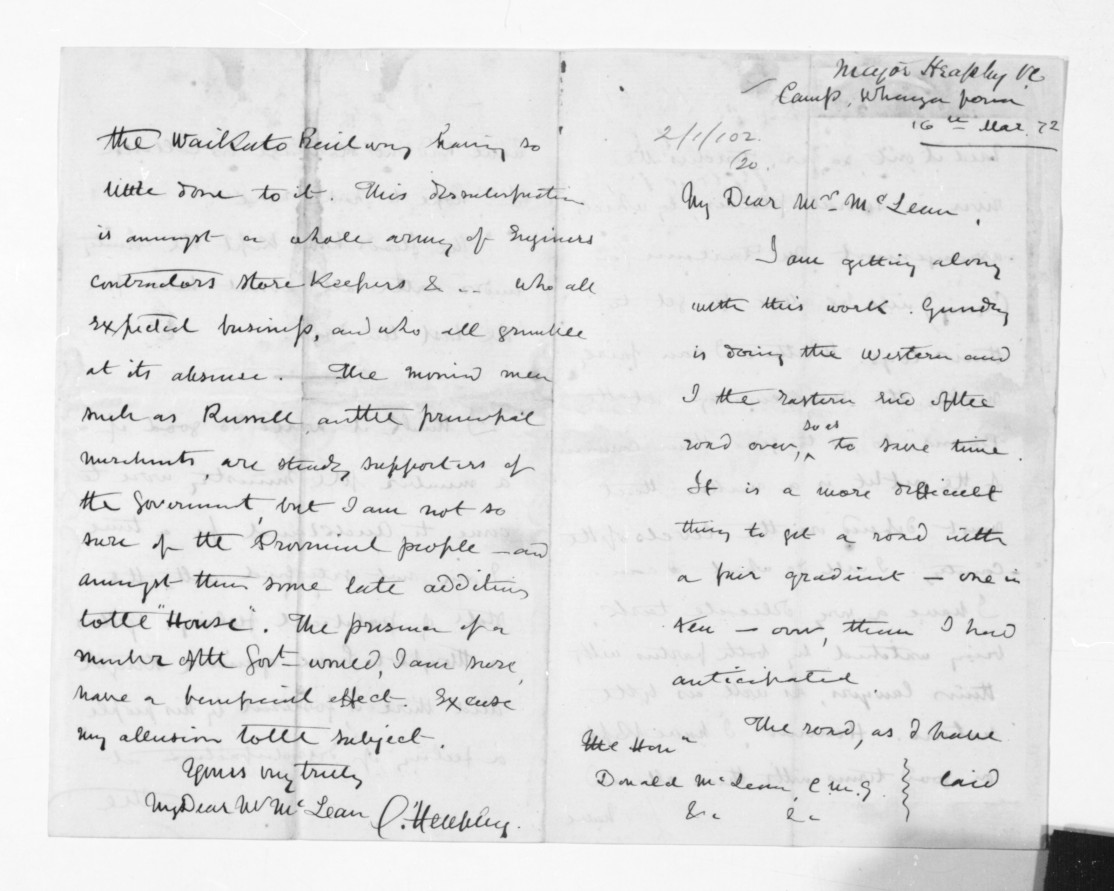 Major Heaphy VC
Camp, Whangarowa
16th Mar. 72
2/1/102
/20.
My Dear Mr. McLean.
I am getting along
with this work. Gundry
is doing the western and
I the eastern end of the
road over, so as to save time.
It is a more difficult
thing to get a road with
a fair gradient – one in
ten – over, than I had
anticipated.
The road, as I have
laid
The Honle
Donald McLean, C.M.G.
&c &c
the Waikato Railway having so
little done to it. This dissatisfaction
is amongst a whole army of Engineers
contractors store Keepers &c. who all
expected business, and who all grumble
at its absence. The monied men
such as Russell, and the principal
merchants, are steady supporters of
the Government, but I am not so
sure of the Provincial people – and
amongst them some late additions
to the "House". The presence of a
member of the Govt. would, I am sure,
have a beneficial effect. Excuse
my allusion to the subject.
Yours very truly
My Dear Mr McLean C. Heaphy.